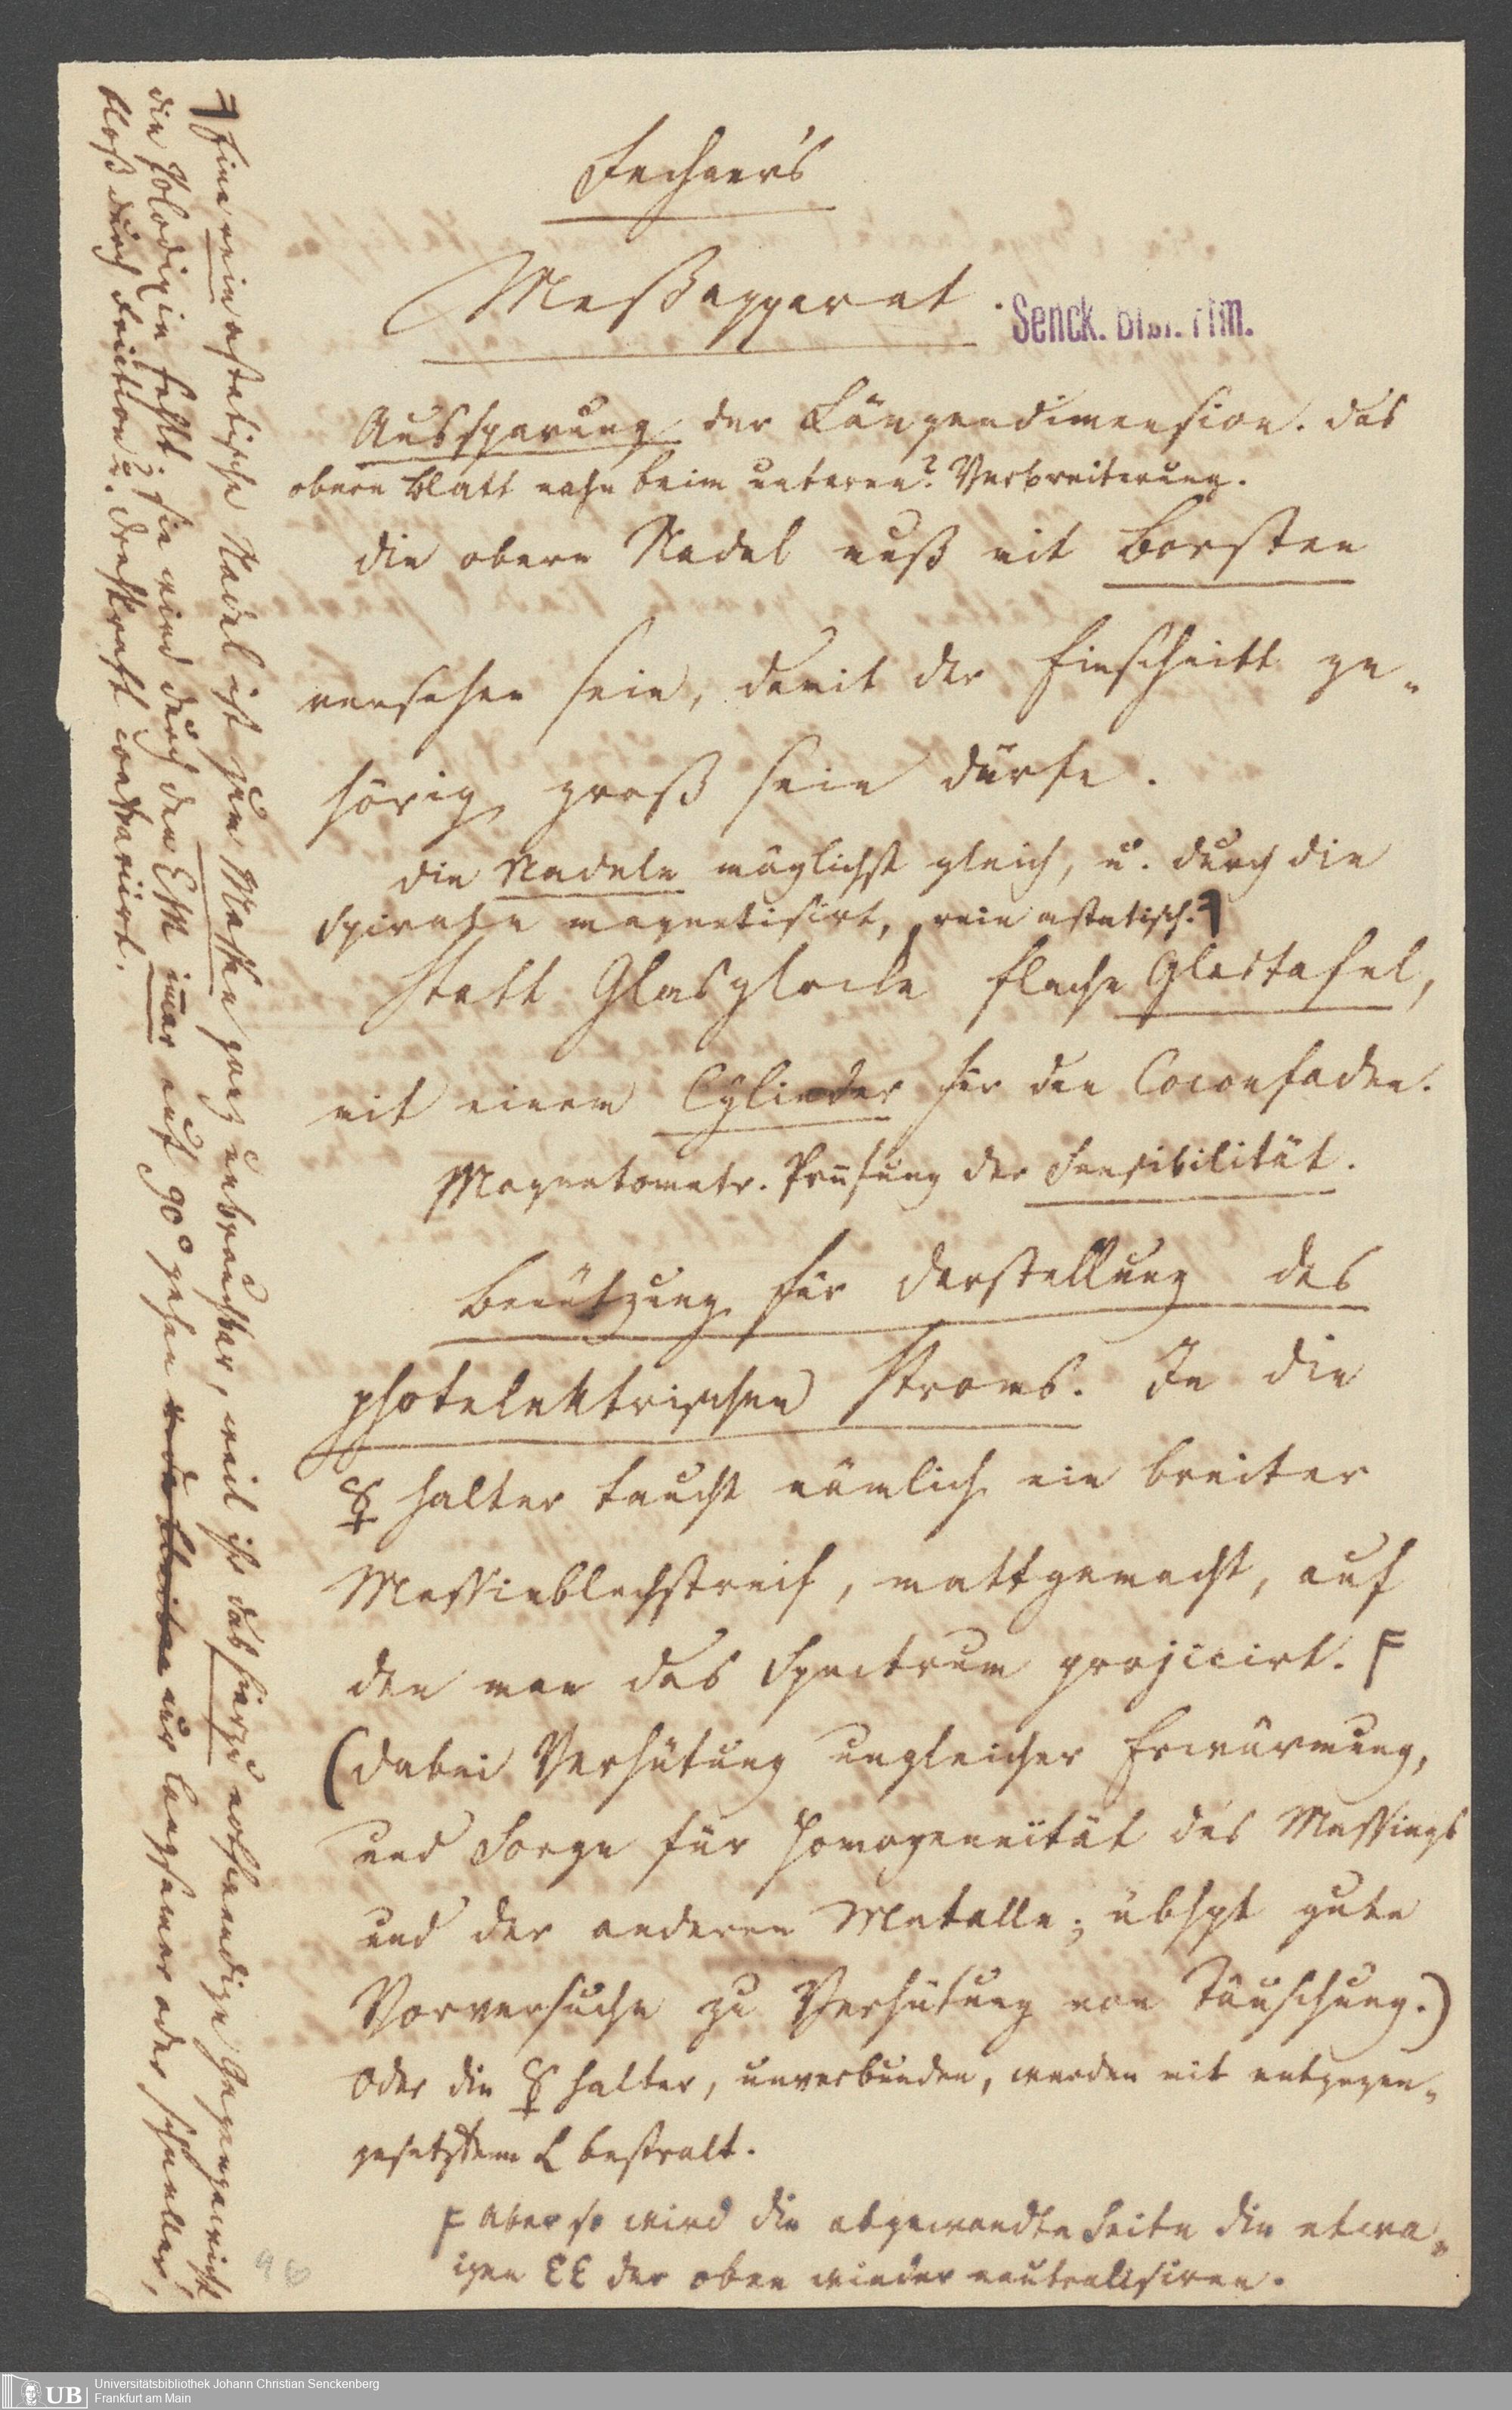 Fechner's
Meßapparat.
Senck. Bibl. Ffm.
Aussparung der Längendimension. das
obere Blatt nahe beim unteren? Verbreiterung.
die obere Nadel muß mit Borsten
versehen sein, damit der Einschnitt ge-
hörig groß sein dürfe.
die Nadeln möglichst gleich, u. durch die
Spirale magnetisirt, rein astatisch.
Statt Glasglocke flache Glastafel,
mit einem Cylinder für den Coconfaden.
Magnetometr. Prüfung der Sensibilität.
Benützung für Darstellung des
photelektrischen Stroms. In die
☿ halter taucht nämlich ein breiter
Messinblechstreif, mattgemacht, auf
den man das Spectrum projicirt. F
(dabei Verhütung ungleicher Erwärmung,
und Sorge für Homogeneität des Messings
und der anderen Metalle; übhpt gute
Vorversuche zu Verhütung von Täuschung.)
Oder die ☿ halter, unverbunden, werden mit entgegen-
gesetztem L bestralt.
F Aber so wird die abgewandte Seite die etwa-
igen EE der oben wieder neutralisiren.
Eine rein astatische Nadel ist zum Messen ganz unbrauchbar, weil ihr das hierzu nothwendige Gegengewicht,
die fehlt; sie wird durch den immer auf 90° gehen nur langsamer oder schneller,
bloß durch Friction u. Drehkraft
96
UB
Universitätsbibliothek Johann Christian Senckenberg
Frankfurt am Main